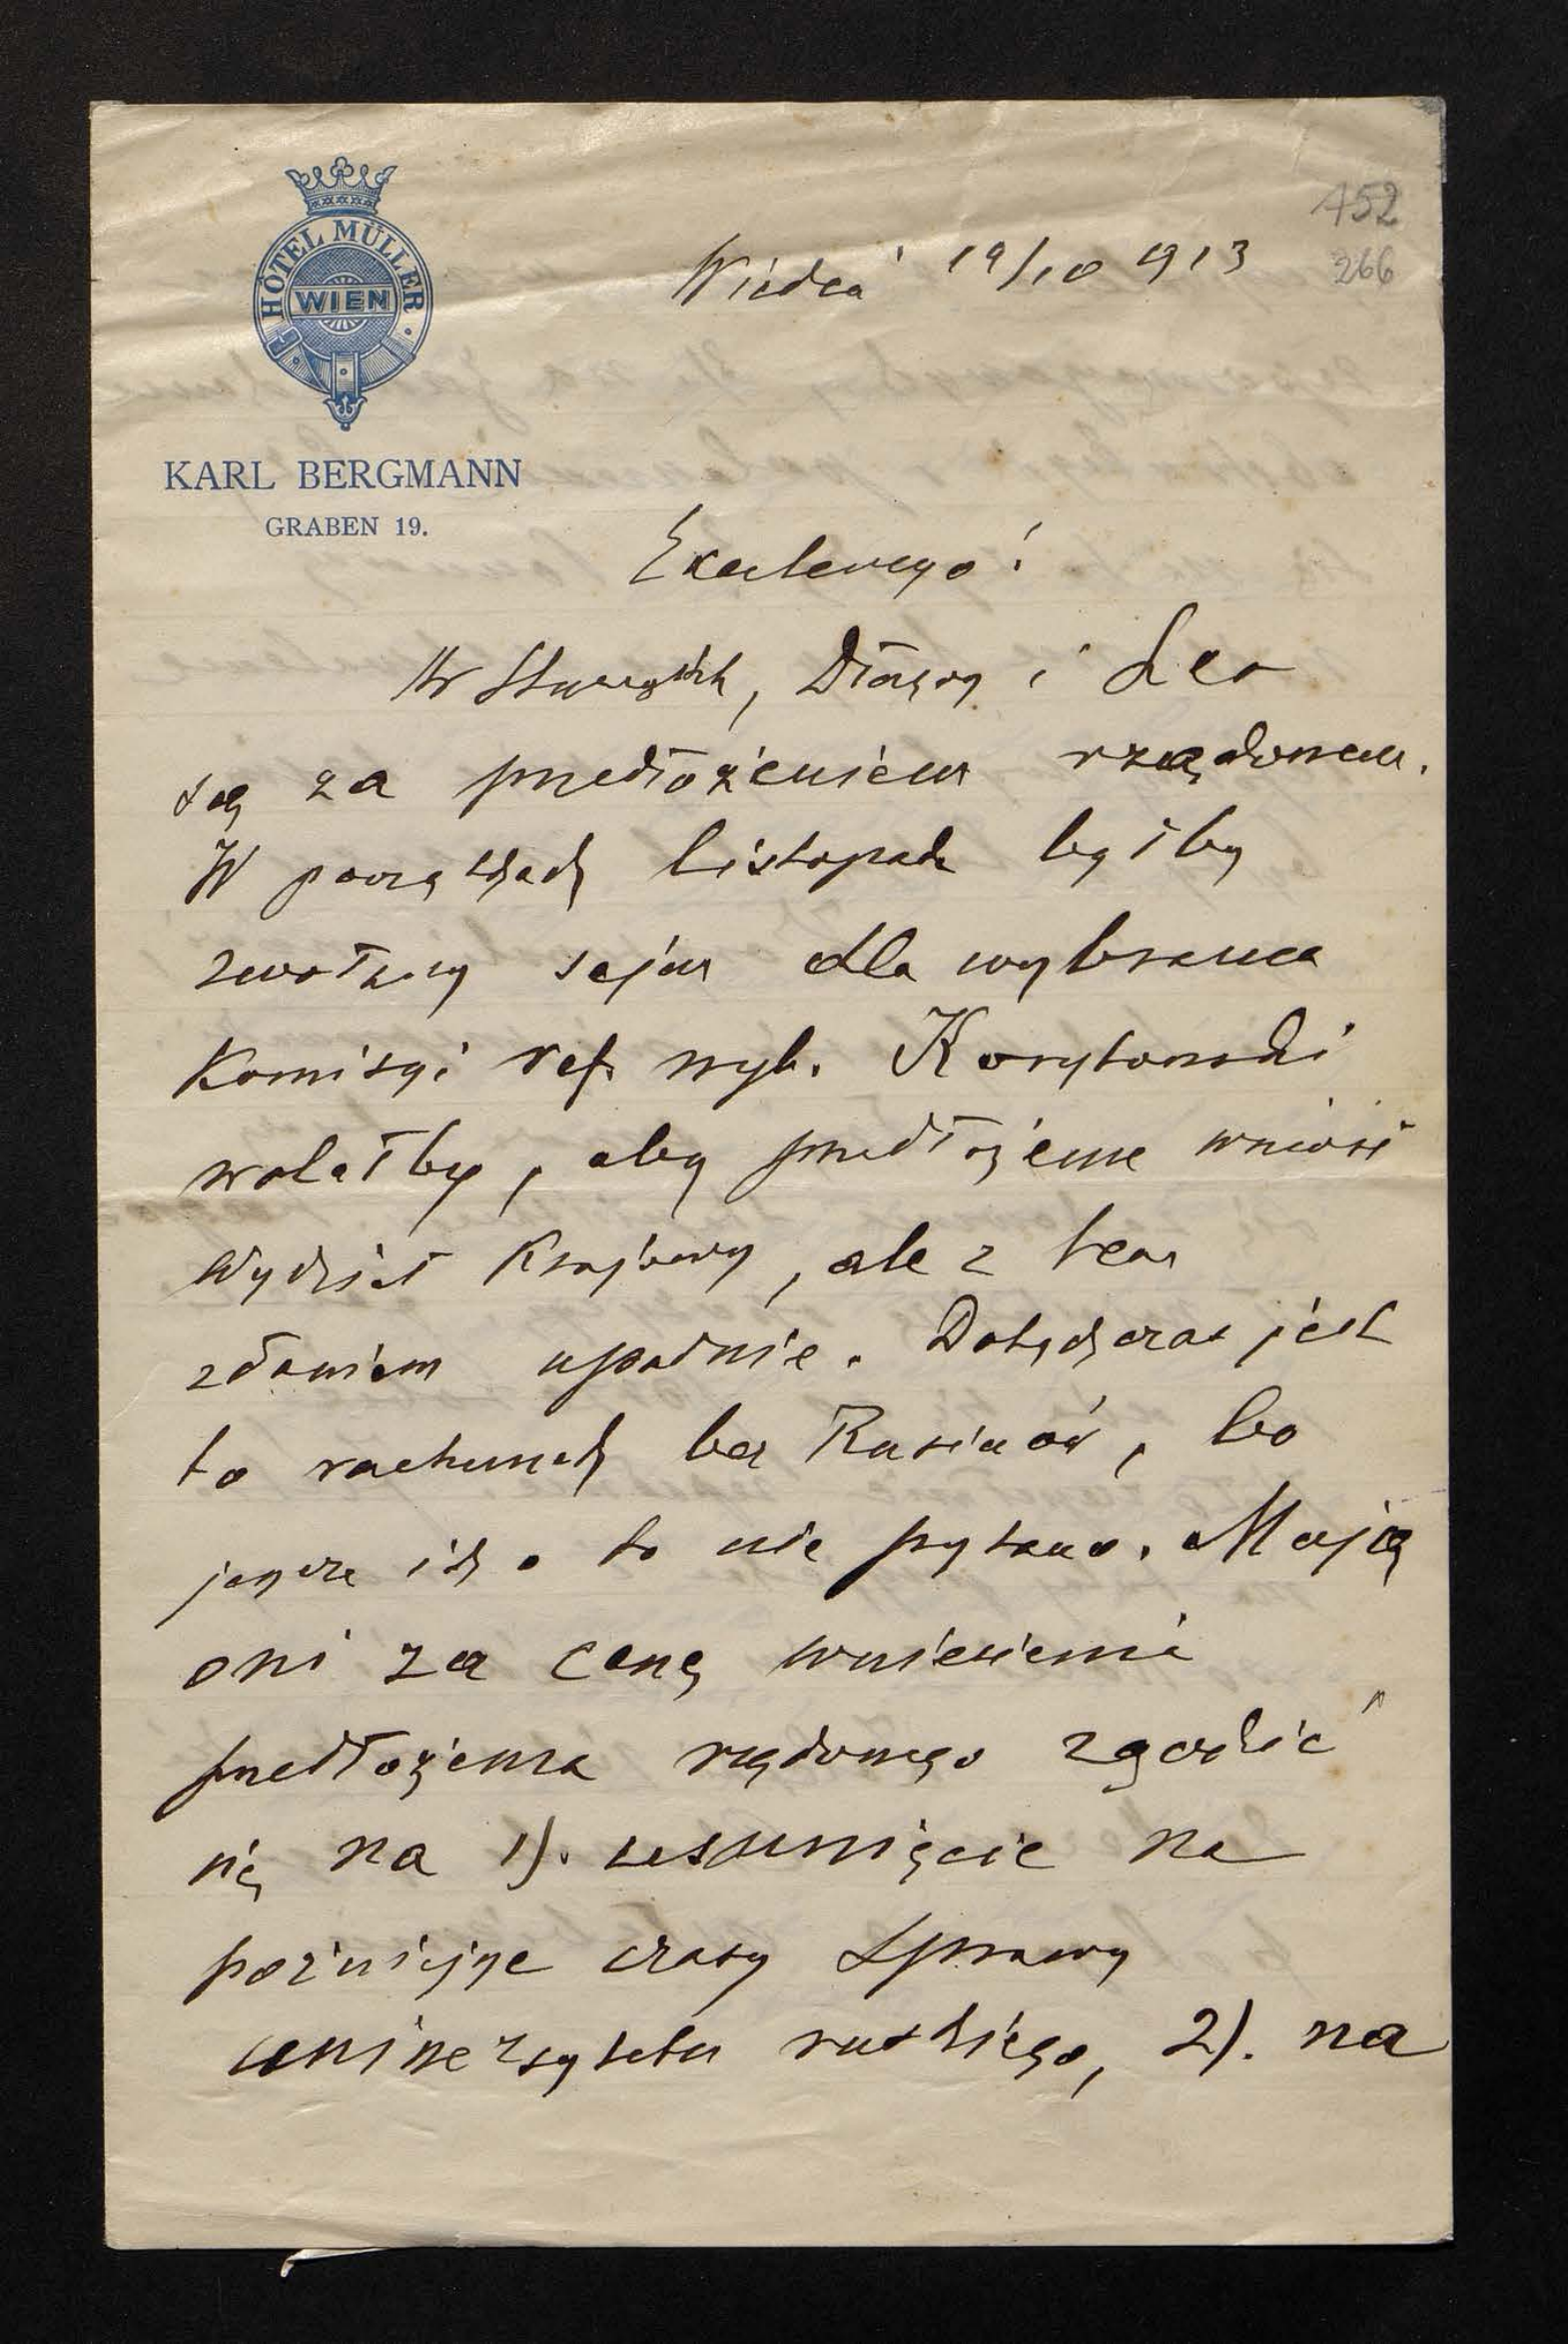 152
266
HÔTEL MÜLLER
WIEN
KARL BERGMANN
GRABEN 19.
Wiedeń 19/10 913
Excellencyo!
Hr Stürgkh, Długosz i Leo
są za przedłożeniem rządowem.
W początkach listopada byłby
zwołany sejm dla wybrania
Komisyi ref. wyb. Korytowski
wolałby, aby przedłożenie wniósł
Wydział Krajowy, ale z tem
zdaniem upadnie. Dotychczas jest
to rachunek bez Rusinów, bo
jeszcze ich o to nie pytano. Mają
oni za cenę wniesienia
przedłożenia rządowego zgodzić
się na 1). usunięcie na
późniejsze czasy sprawy
uniwersytetu ruskiego, 2). na